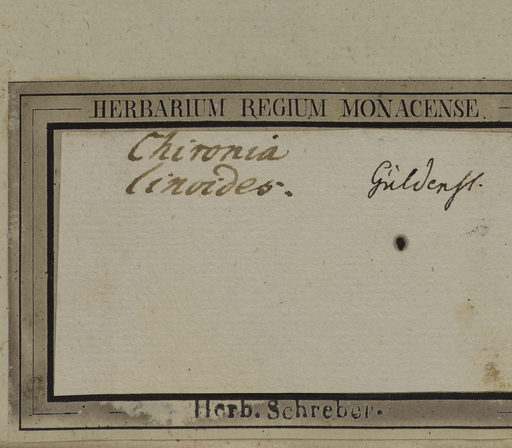 HERBARIUM REGIUM MONACENSE.
Chironia
linoides.
Güldenst.
Herb. Schreber.